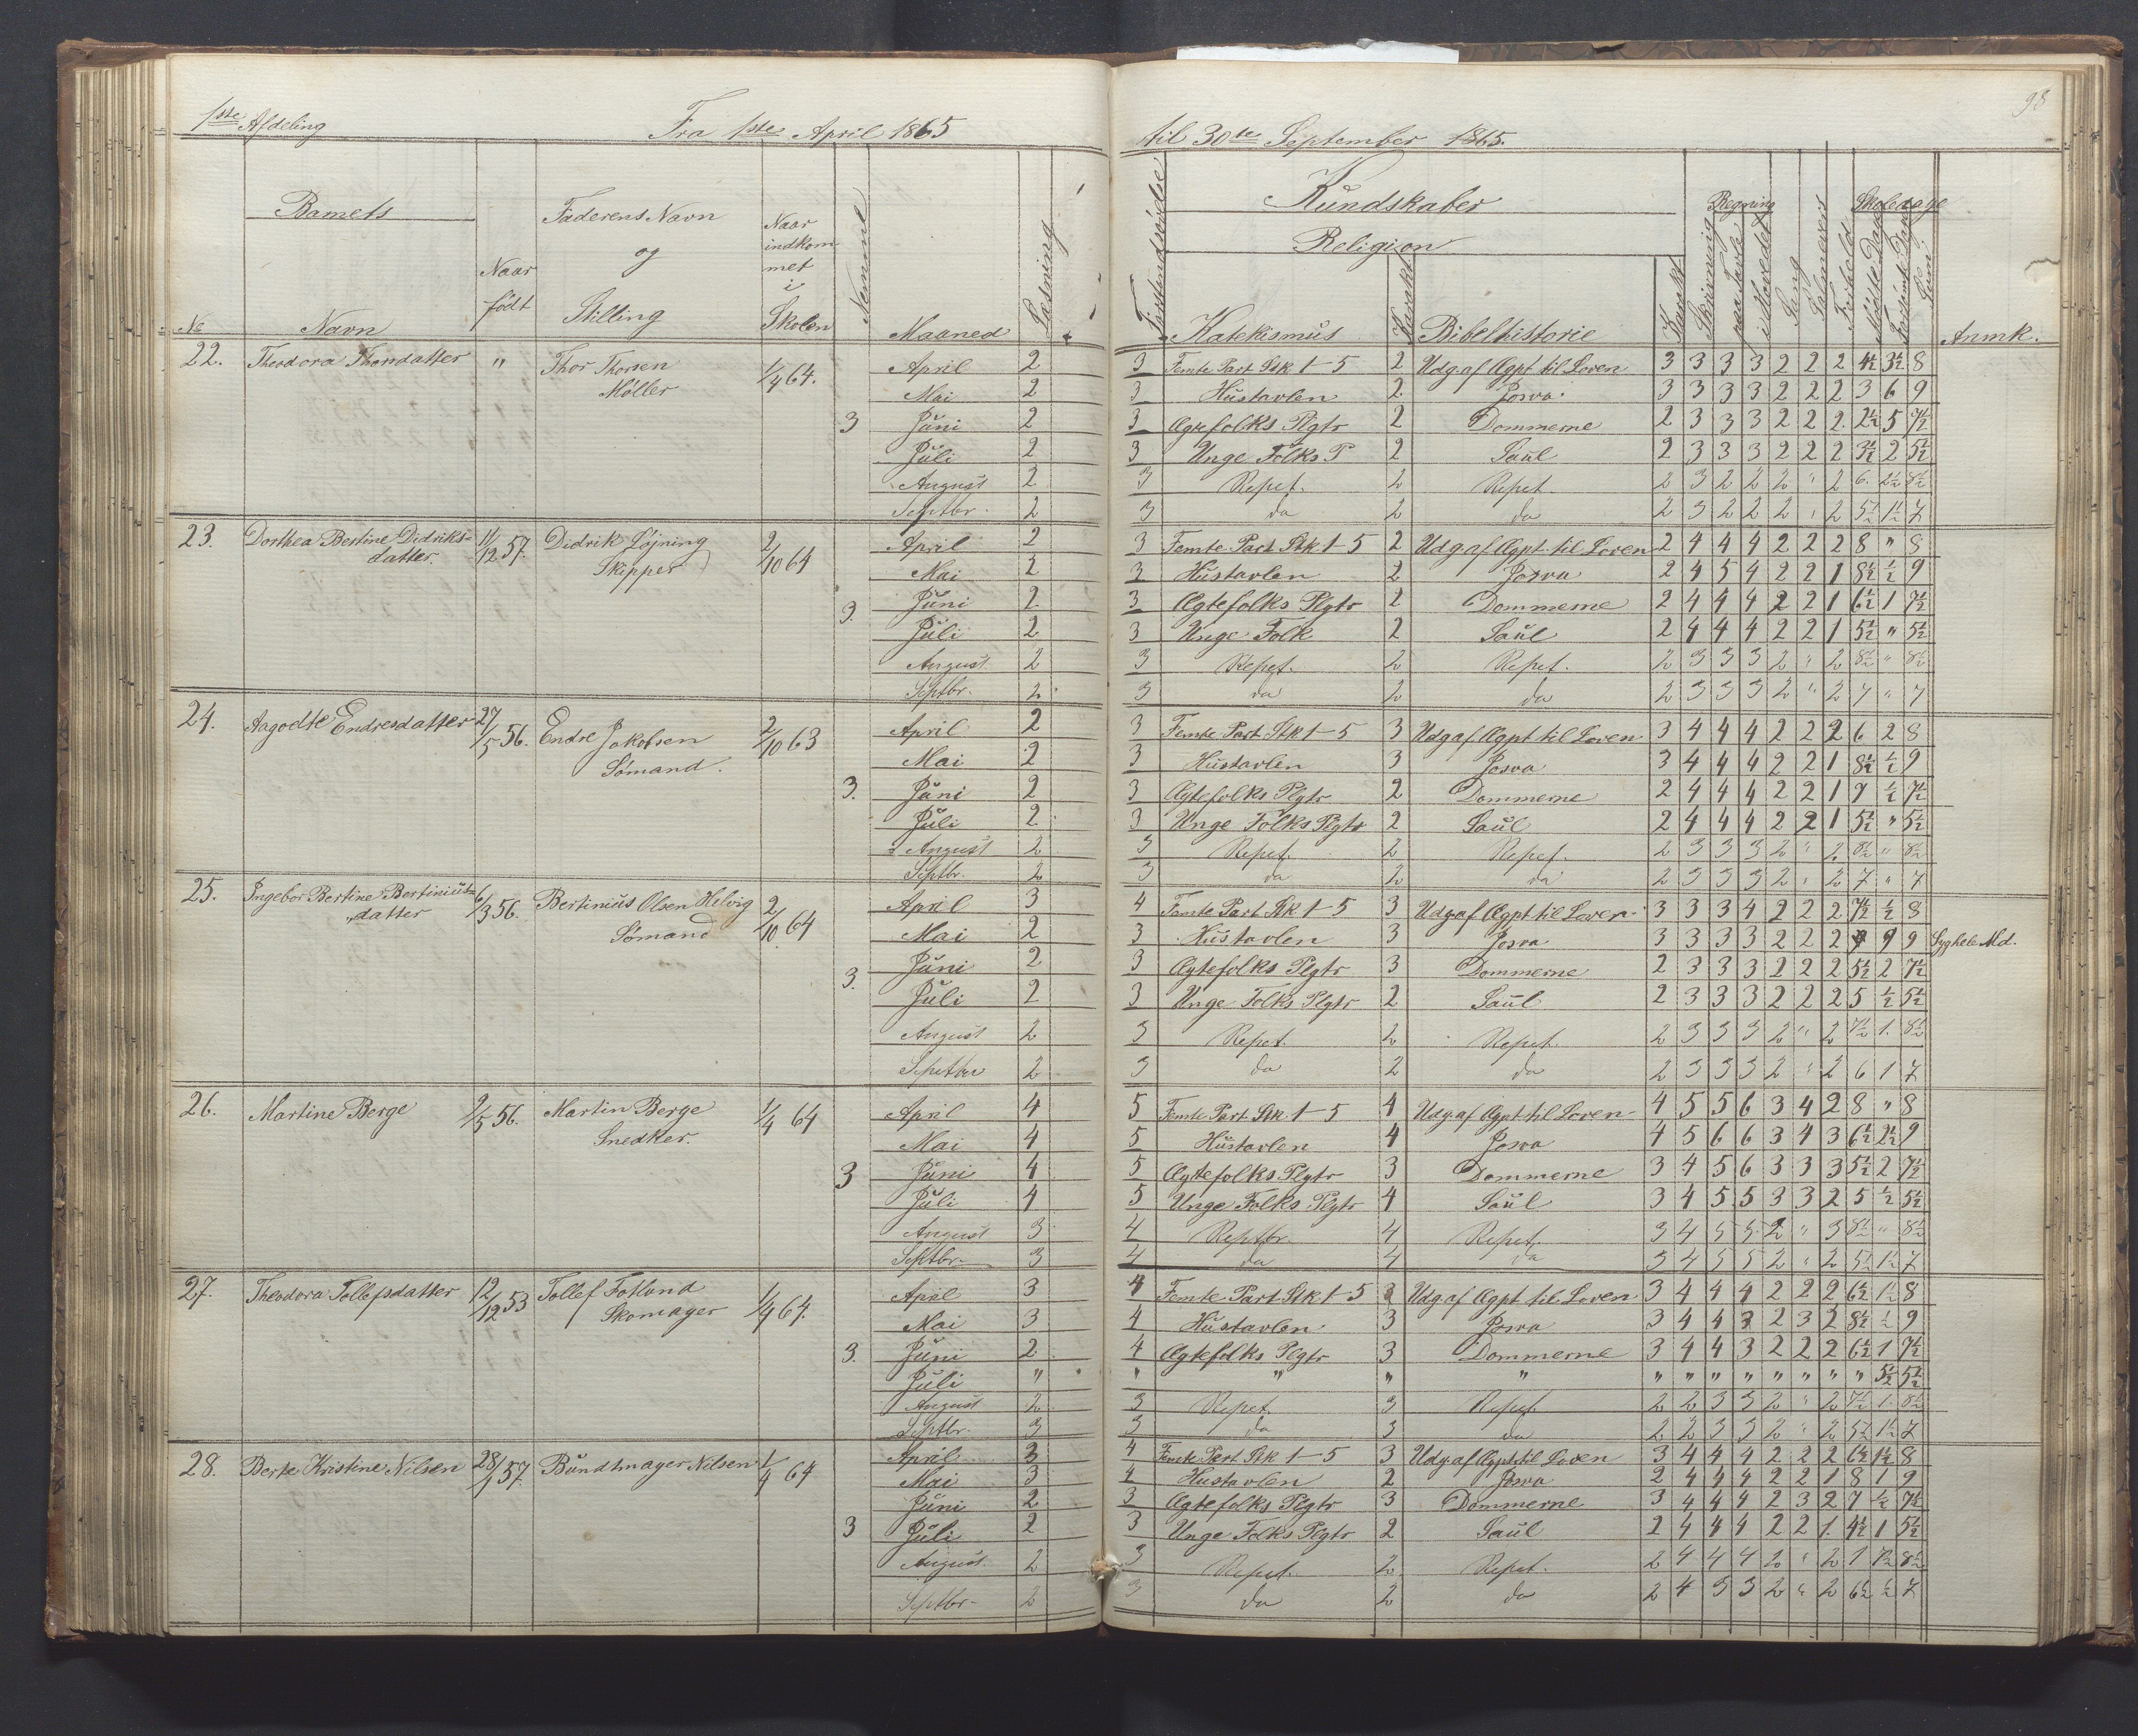 98
1ste Afdeling Fra 1ste April 1865 til 30te September 1865.
Barnets
No
Navn
Naar født
Faderens Navn og Stilling
Naar indkommet i Skolen
Nemmit
Maaned
Læsning
Forstandsøvelse
Kundskaber
Religion
Katekismus
Karakt.
Bibelhistorie
Karakt.
Skrivning
Regning
paa Tavle
i Hovedet
Sang
Forhold
Skoledage
Mødte Dage
Forsømte Dage
Sum
Anmk.
22. Theodora Thorsdatter " Thor Thorsen Møller 1/4 64. 3
April 2 3 Femte Part Stk 1-5 2 Udg. af Ægpt til Loven 3 3 3 3 2 2 2 4½ 3½ 8
Mai 2 3 Hustavlen 2 Josva 3 3 3 3 2 2 2 3 6 9
Juni 2 3 Ægtefolks Plgtr 2 Dommerne 2 3 3 3 2 2 2 2½ 5 7½
Juli 2 3 Unge Folks P 2 Saul 2 3 3 3 2 2 2 3½ 2 5½
August 2 3 Repet. 2 Repet. 2 3 2 2 2 " 2 6 2½ 8½
Septbr. 2 3 do 2 do 2 3 2 2 2 " 2 5½ 1½ 7
23. Dorthea Bertine Didriksdatter. 11/12 57. Didrik Løjning Skipper 2/10 64 3.
April 2 3 Femte Part Stk 1-5 2 Udg af Ægpt. til Loven 2 4 4 4 2 2 2 8 " 8
Mai 2 3 Hustavlen 2 Josva 2 4 5 4 2 2 1 8½ ½ 9
Juni 2 3 Ægtefolks Plgtr 2 Dommerne 2 4 4 4 2 2 1 6½ 1 7½
Juli 2 3 Unge Folk 2 Saul 2 4 4 4 2 2 1 5½ " 5½
August 2 3 Repet. 2 Repet. 2 3 3 3 2 " 2 8½ " 8½
Septbr. 2 3 do 2 do 2 3 3 3 2 " 2 7 " 7
24. Aagodte Endresdatter 27/5 56. Endre Jakobsen Sømand. 2/10 63 3.
April 2 3 Femte Part Stk 1-5 3 Udg af Ægpt til Loven 3 4 4 4 2 2 2 6 2 8
Mai 2 3 Hustavlen 3 Josva 3 4 4 4 2 2 1 8½ ½ 9
Juni 2 3 Ægtefolks Plgtr 2 Dommerne 2 4 4 4 2 2 1 7 ½ 7½
Juli 2 3 Unge Folks Plgtr 2 Saul 2 4 4 4 2 2 1 5½ " 5½
August 2 3 Repet. 2 Repet. 2 3 3 3 2 " 2 8½ " 8½
Septbr. 2 3 do 2 do 2 3 3 3 2 " 2 7 " 7
25. Ingebor Bertine Bertiniusdatter 6/3 56. Bertinius Olsen Helvig Sømand 2/10 64 3.
April 3 4 Femte Part Stk 1-5 3 Udg af Ægpt til Loven 3 3 3 4 2 2 2 7½ ½ 8
Mai 2 3 Hustavlen 3 Josva 3 3 3 3 2 2 2 " 9 9 Syg hele Md.
Juni 2 3 Ægtefolks Plgtr 3 Dommerne 2 3 3 3 2 2 2 5½ 2 7½
Juli 2 3 Unge Folks Plgtr 2 Saul 2 3 3 3 2 2 2 5 ½ 5½
August 2 3 Repet. 2 Repet. 2 3 3 3 2 " 2 7½ 1 8½
Septbr 2 3 do 2 do 2 3 3 3 2 " 2 6 1 7
26. Martine Berge 9/5 56. Martin Berge Snedker. 1/4 64 3
April 4 5 Femte Part Stk. 1-5 4 Udg. af Ægpt til Loven 4 5 5 6 3 4 2 8 " 8
Mai 4 5 Hustavlen 4 Josva 4 5 6 6 3 4 3 6½ 2½ 9
Juni 4 5 Ægtefolks Plgtr 3 Dommerne 3 4 5 6 3 3 3 5½ 2 7½
Juli 4 5 Unge Folks Plgtr 4 Saul 3 4 5 5 3 3 2 5 ½ 5½
August 3 4 Reptbr. 4 Repet. 3 4 5 5 2 " 3 8½ " 8½
Septbr 3 4 do 4 do 3 4 5 5 2 " 2 5½ 1½ 7
27. Theodora Tollefsdatter 12/12 53 Tollef Fotland Skomager 1/4 64. 3.
April 3 4 Femte Part Stk 1-5 3 Udg af Ægpt til Loven 3 4 4 4 2 2 2 6½ 1½ 8
Mai 3 4 Hustavlen 3 Josva 3 4 4 3 2 3 2 8½ ½ 9
Juni 2 4 Ægtefolks Plgtr 3 Dommerne 3 4 4 3 2 2 2 6½ 1 7½
Juli " " " " " " " " " " " " " 5½ 5½
August 2 3 Repet. 3 Repet 2 2 3 3 2 " 2 7½ 1 8½
Septbr. 3 3 do 3 do 2 2 3 3 2 " 2 5½ 1½ 7
28. Berte Kristine Nilsen 28/1 57. Bundtmager Nilsen 1/4 64 3
April 3 4 Femte Part Stk 1-5 3 Udg. af Ægpt til Loven 3 4 4 4 2 2 2 6½ 1½ 8
Mai 3 4 Hustavlen 2 Josva 2 4 4 4 2 2 1 8 1 9
Juni 2 3 Ægtefolks Plgtr 3 Dommerne 3 4 4 4 2 3 2 7 ½ 7½
Juli 2 3 Unge Folks Plgtr 2 Saul 2 4 4 4 2 2 1 4½ 1 5½
August. 2 3 Repet. 2 Repet. 2 4 4 4 2 " 2 1 7½ 8½
Septbr 2 3 do 2 do 2 4 3 3 2 " 2 6½ ½ 7